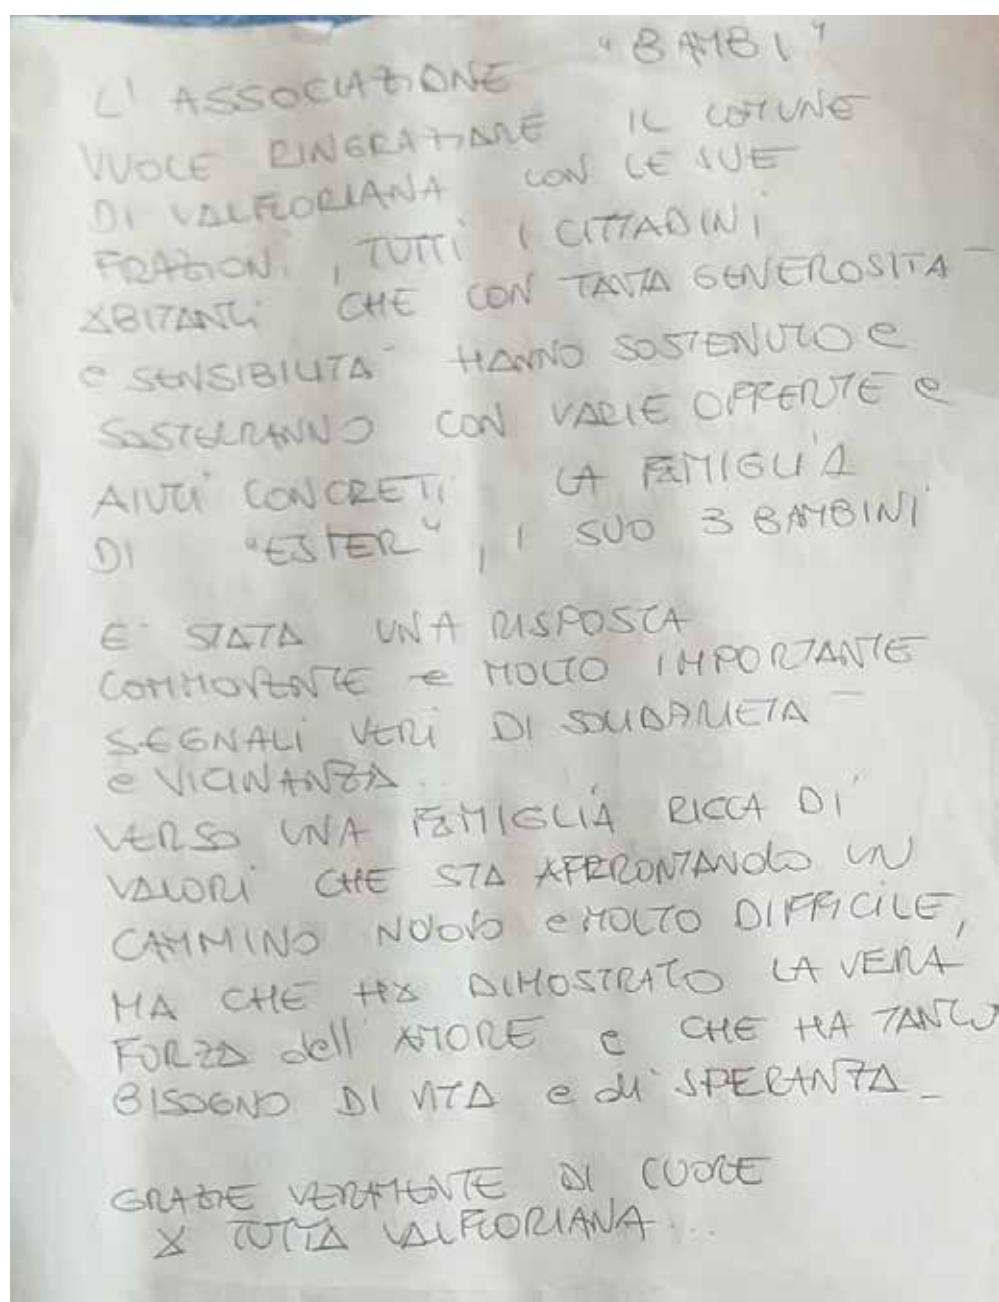 L' ASSOCIAZIONE "BAMBI"
VUOLE RINGRAZIARE IL COMUNE
DI VALFLORIANA CON LE SUE
FRAZIONI, TUTTI I CITTADINI
ABITANTI CHE CON TANTA GENEROSITA
e SENSIBILITA HANNO SOSTENUTO e
SOSTERRANNO CON VARIE OFFERTE e
AIUTI CONCRETI LA FAMIGLIA
DI "ESTER", I SUO 3 BAMBINI
E' STATA UNA RISPOSTA
COMMOVENTE e MOLTO IMPORTANTE
SEGNALI VERI DI SOLIDARIETA
e VICINANZA..
VERSO UNA FAMIGLIA RICCA DI
VALORI CHE STA AFFRONTANDO UN
CAMMINO NUOVO e MOLTO DIFFICILE,
MA CHE HA DIMOSTRATO LA VERA
FORZA dell' AMORE e CHE HA TANTO
BISOGNO DI VITA e di SPERANZA_
GRAZIE VERAMENTE DI CUORE
X TUTTA VALFLORIANA...